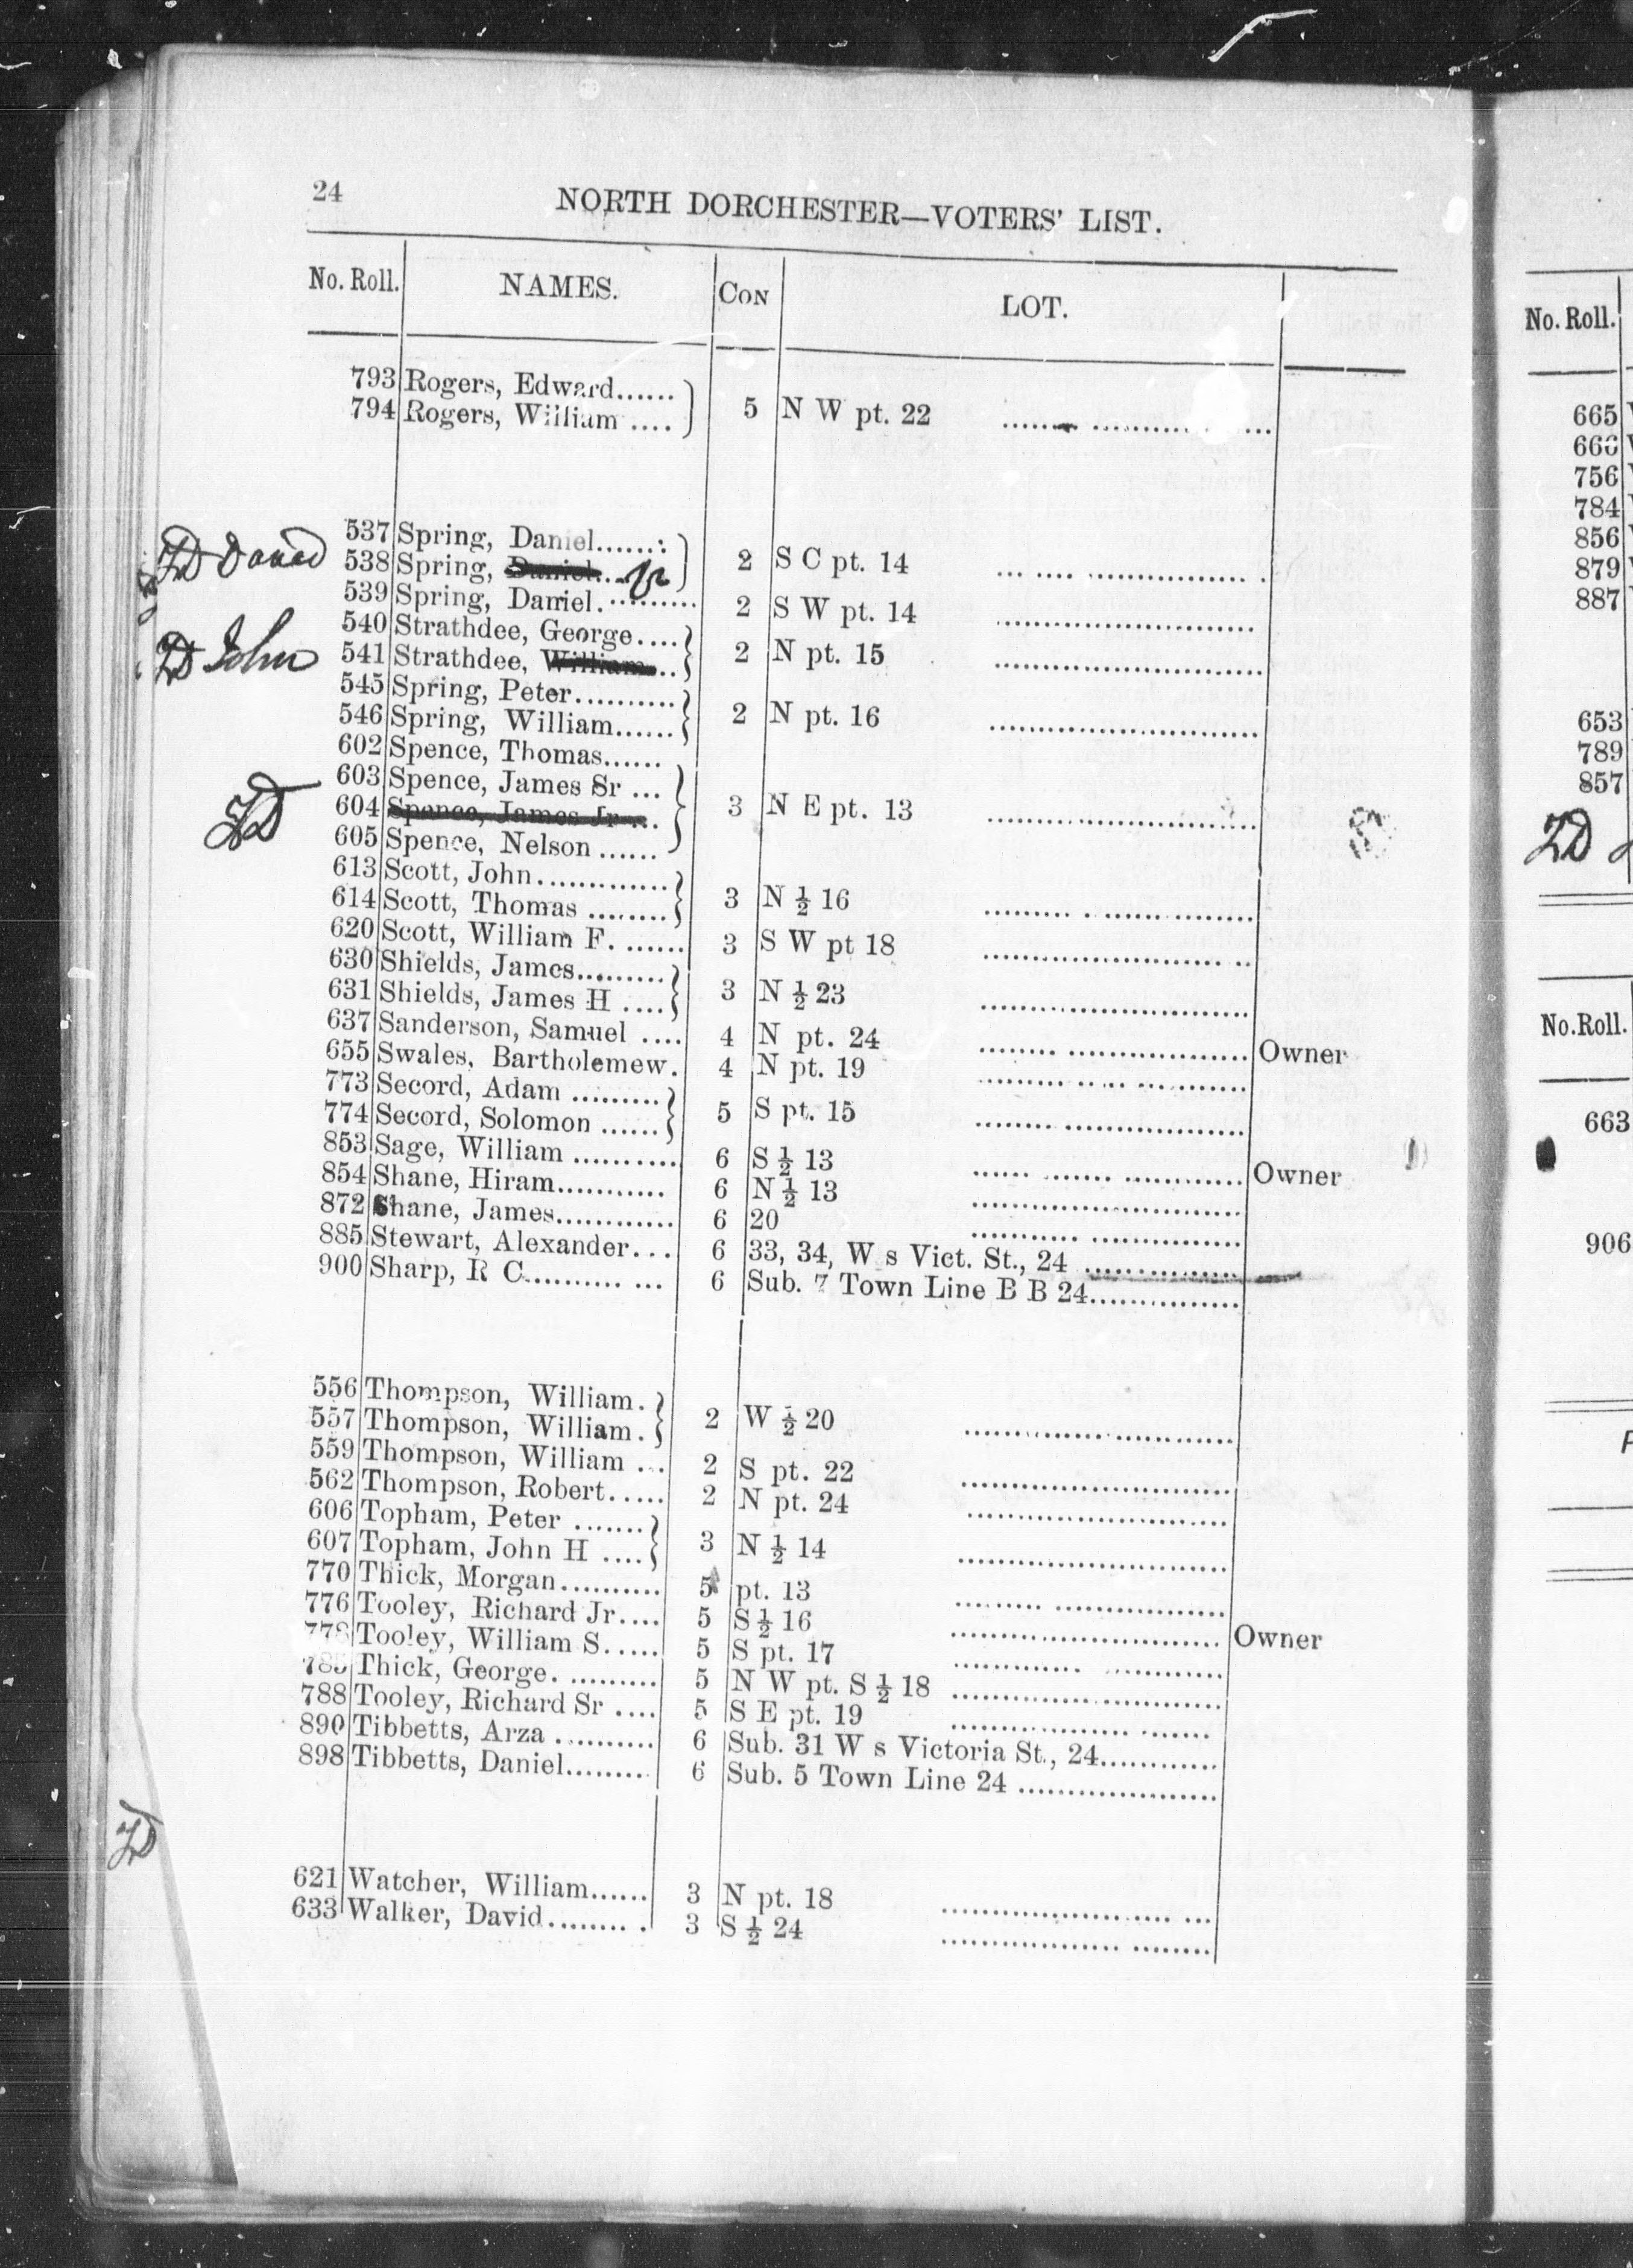 24
NORTH DORCHESTER—VOTERS' LIST.
No. Roll. NAMES. CON LOT.
793 Rogers, Edward......
794 Rogers, William .... 5 N W pt. 22
537 Spring, Daniel......
David 538 Spring, Daniel. Jr 2 S C pt. 14
539 Spring, Daniel. ......... 2 S W pt. 14
540 Strathdee, George....
John 541 Strathdee, William.. 2 N pt. 15
545 Spring, Peter..........
546 Spring, William...... 2 N pt. 16
602 Spence, Thomas......
603 Spence, James Sr ...
604 Spence, James Jr ... 3 N E pt. 13
605 Spence, Nelson ......
613 Scott, John.............
614 Scott, Thomas ........ 3 N ½ 16
620 Scott, William F. ...... 3 S W pt 18
630 Shields, James.........
631 Shields, James H .... 3 N ½ 23
637 Sanderson, Samuel .... 4 N pt. 24 Owner
655 Swales, Bartholemew. 4 N pt. 19
773 Secord, Adam .........
774 Secord, Solomon ...... 5 S pt. 15
853 Sage, William .......... 6 S ½ 13 Owner
854 Shane, Hiram........... 6 N ½ 13
872 Shane, James............ 6 20
885 Stewart, Alexander... 6 33, 34, W s Vict. St., 24
900 Sharp, R C.......... ... 6 Sub. 7 Town Line B B 24
556 Thompson, William.
557 Thompson, William. 2 W ½ 20
559 Thompson, William ... 2 S pt. 22
562 Thompson, Robert..... 2 N pt. 24
606 Topham, Peter .......
607 Topham, John H .... 3 N ½ 14
770 Thick, Morgan.......... 5 pt. 13
776 Tooley, Richard Jr.... 5 S ½ 16 Owner
778 Tooley, William S..... 5 S pt. 17
Thick, George. ......... 5 N W pt. S ½ 18
788 Tooley, Richard Sr .... 5 S E pt. 19
890 Tibbetts, Arza .......... 6 Sub. 31 W s Victoria St., 24
898 Tibbetts, Daniel......... 6 Sub. 5 Town Line 24
621 Watcher, William...... 3 N pt. 18
633 Walker, David......... 3 S ½ 24
No. Roll.
665
666
756
784
856
879
887
653
789
857
No. Roll.
663
906